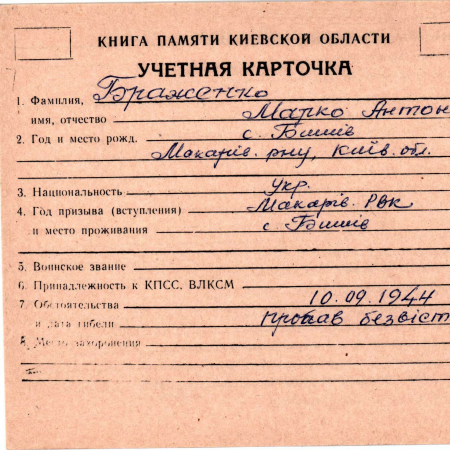 КНИГА ПАМЯТИ КИЕВСКОЙ ОБЛАСТИ
УЧЕТНАЯ КАРТОЧКА
1. Фамилия, Браженко
имя, отчество Марко Антон
2. Год и место рожд. с. Бишів
Макарів. р-ну, Київ. обл.
3. Национальность укр.
4. Год призыва (вступления) Макарів. РВК
и место проживания с Бишів
5. Воинское звание
6. Принадлежность к КПСС, ВЛКСМ
7. Обстоятельства 10.09.1944
и дата гибели пропав безвіст
8. Место захоронения